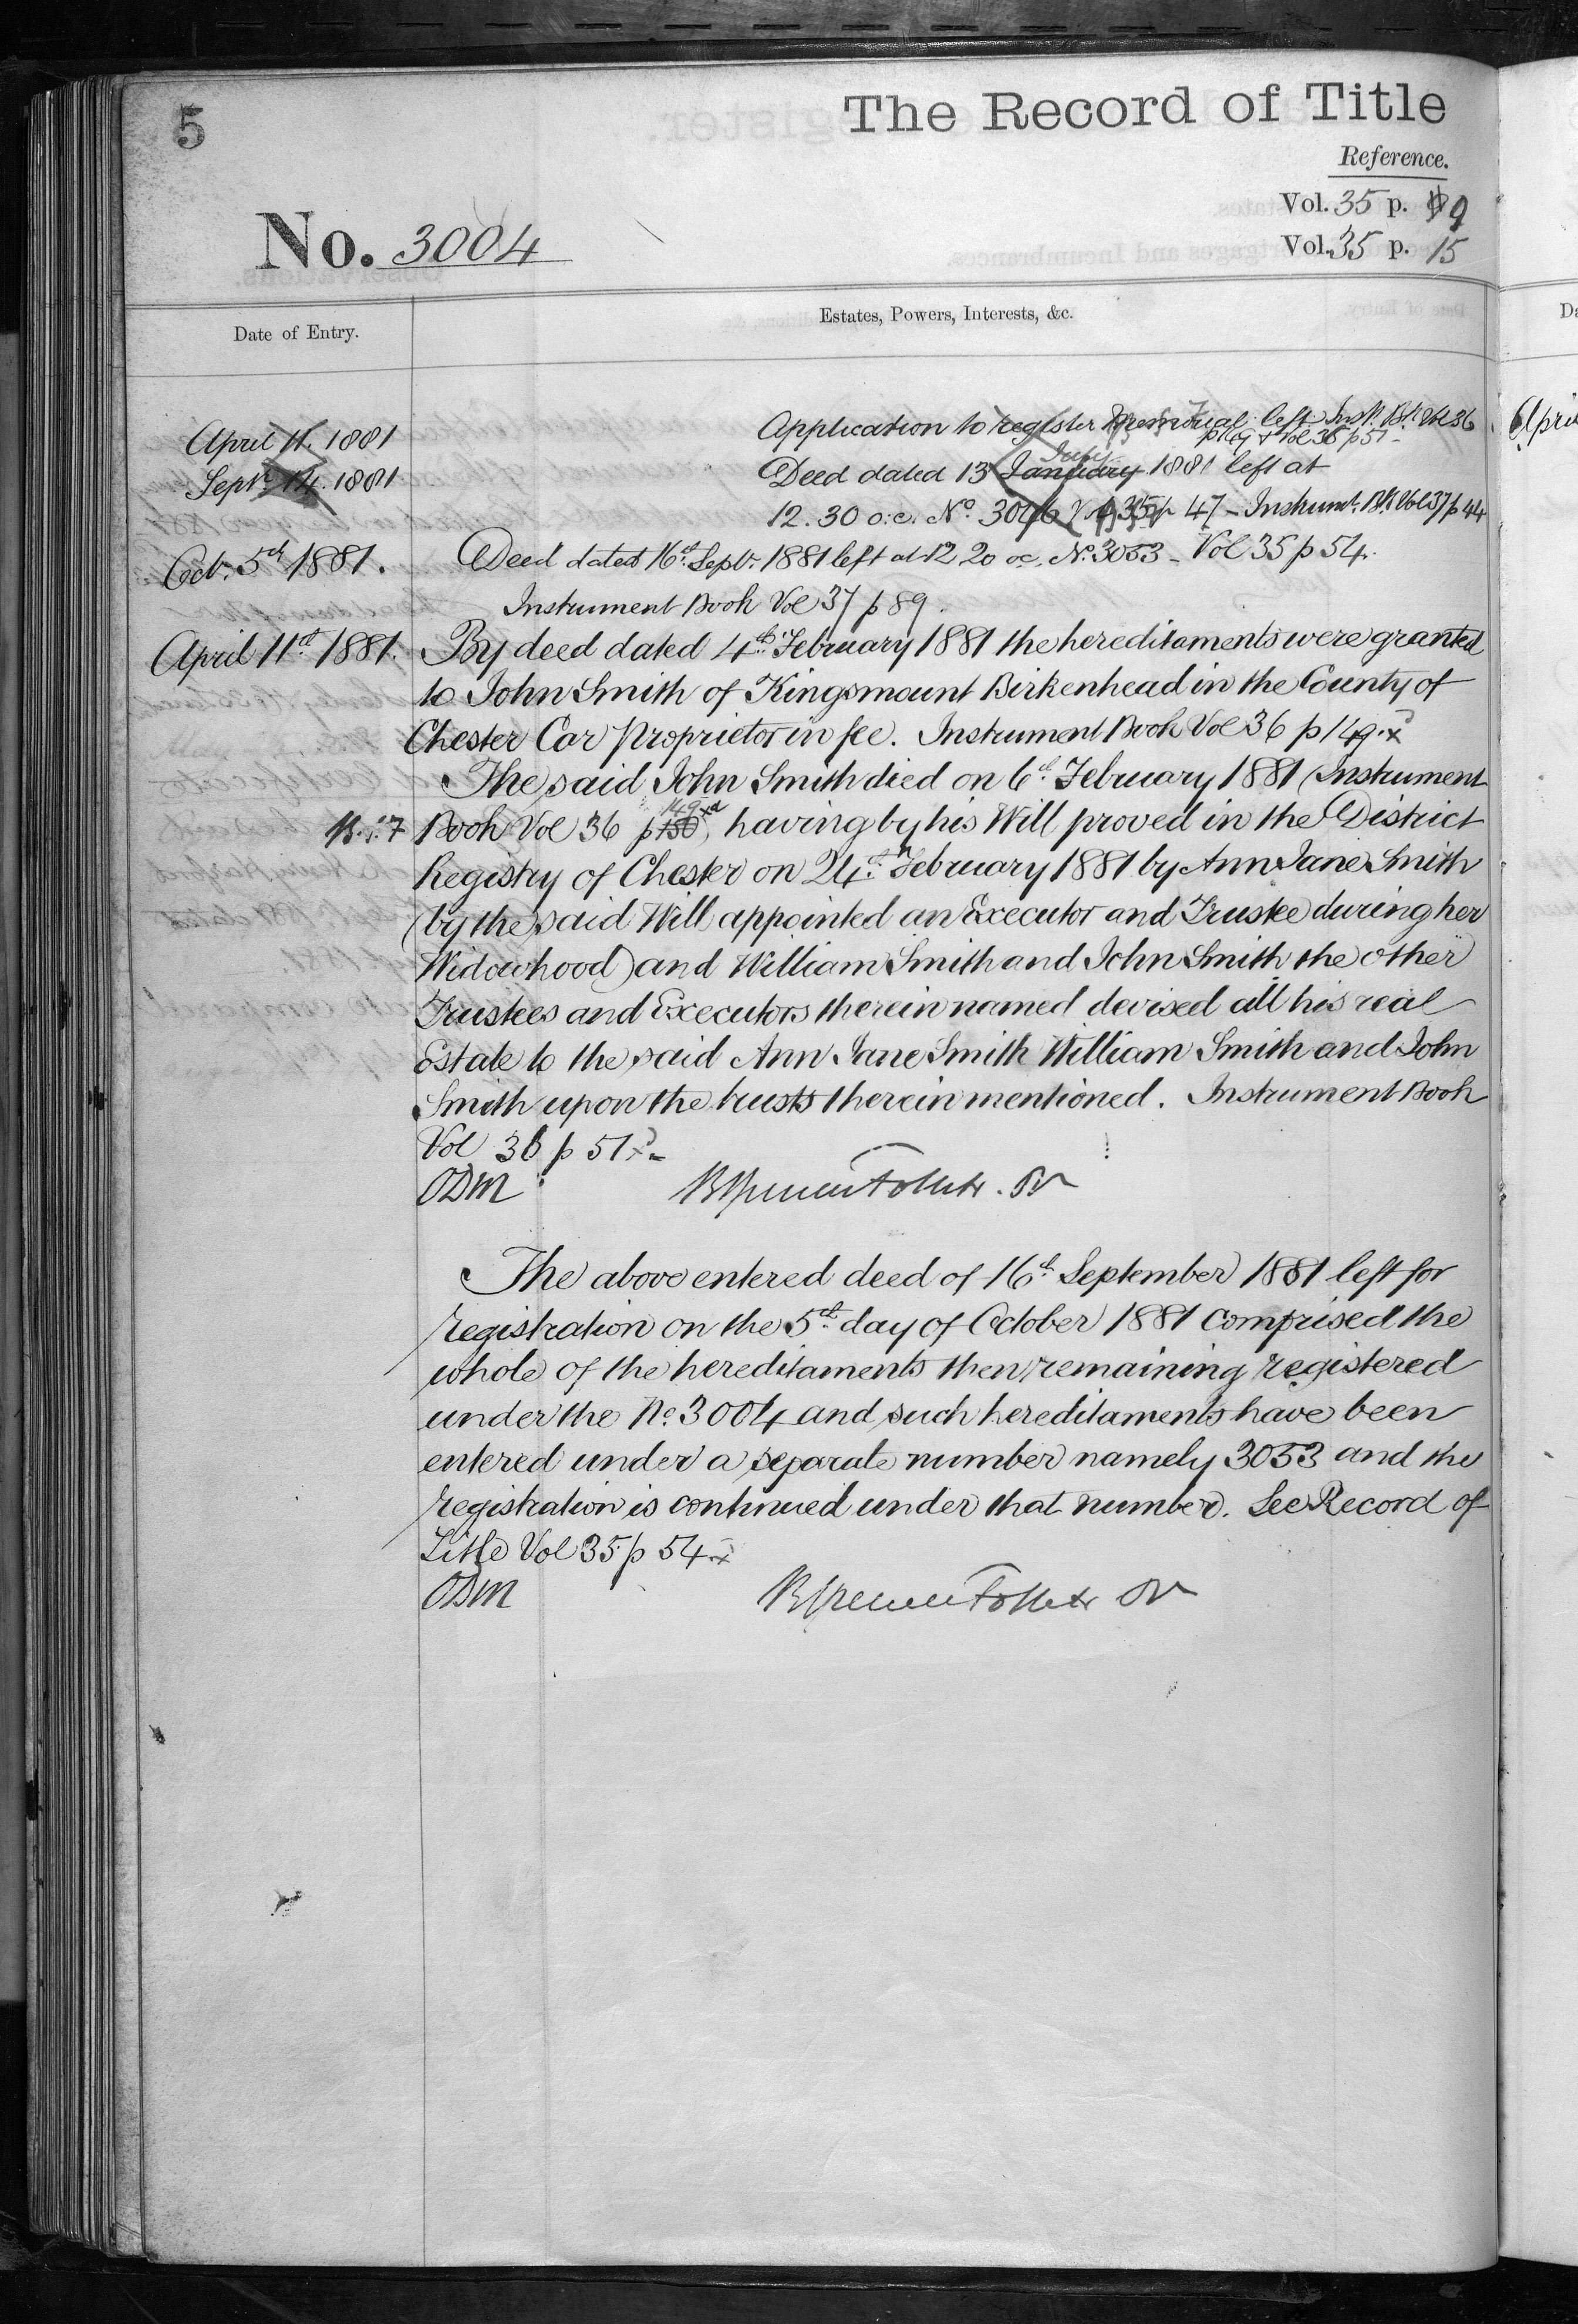 5
The Record of Title
Reference.
Vol. 35 p. 9
No. 3004
Vol. 35 p. 15
Date of Entry.
Estates, Powers, Interests, &c.
April 11. 1881
Application to register left Inst. Bk. Vol 36
p 149 + Vol 36 p 51-
Sept. 14. 1881
Deed dated 13 January July 1881 left at
12.30 o.c. No. 3046 Vol 35 p 47 - Instrumt. Bk Vol 37 p 44
Oct. 5th 1881.
Deed dated 16th Sept. 1881 left at 12 20 oc. No. 3053 - Vol 35 p 54.
Instrument Book Vol 37 p 89.
April 11th 1881.
By deed dated 4th February 1881 the hereditaments were granted
to John Smith of Kingsmount Birkenhead in the County of
Chester Car Proprietor in fee. Instrument Book Vol 36 p 149. x
The said John Smith died on 6th February 1881 (Instrument
Book Vol 36 p 150 149, having by his Will proved in the District
Registry of Chester on 24th February 1881 by Ann Jane Smith
(by the said Will appointed an Executor and Trustee during her
Widowhood) and William Smith and John Smith the other
Trustees and Executors therein named devised all his real
Estate to the said Ann Jane Smith William Smith and John
Smith upon the trusts therein mentioned. Instrument Book
Vol 36 p 51 x
ODM
The above entered deed of 16th September 1881 left for
registration on the 5th day of October 1881 comprised the
whole of the hereditaments then remaining registered
under the No. 3004 and such hereditaments have been
entered under a separate number namely 3053 and the
registration is continued under that number. See Record of
Title Vol 35 p 54 x
ODM